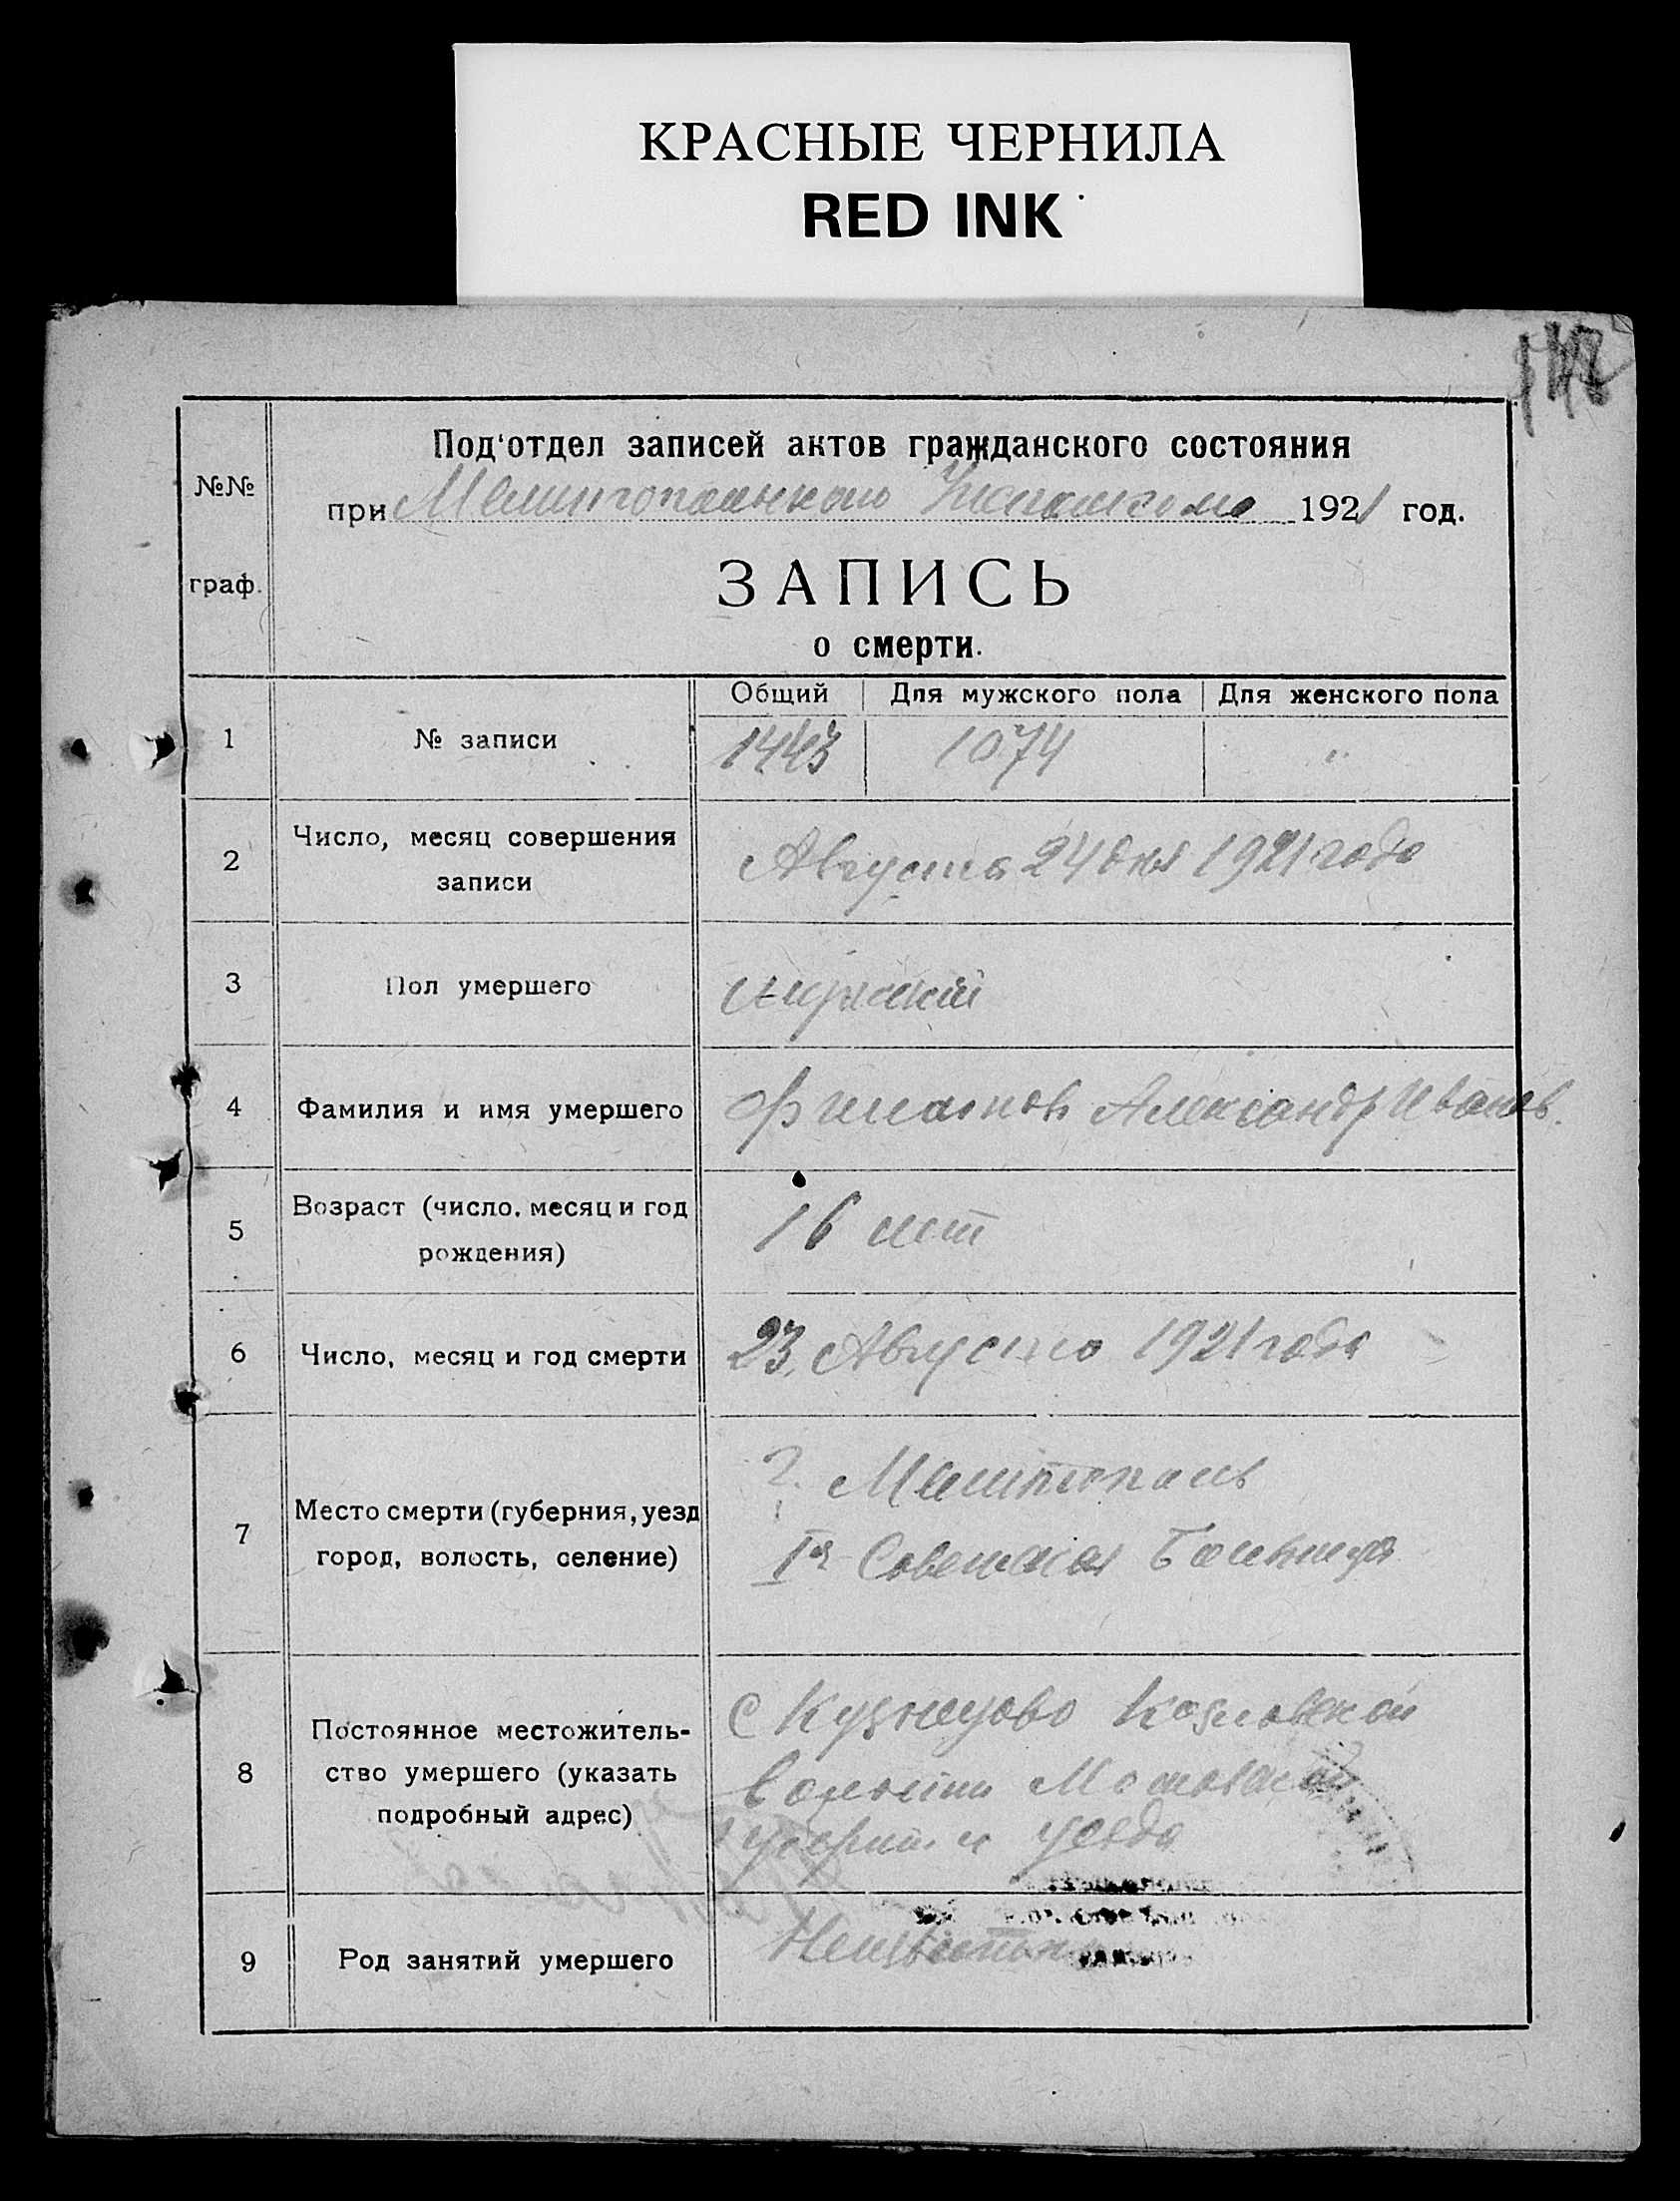 КРАСНЫЕ ЧЕРНИЛА
RED INK
Под'отдел записей актов гражданского состояния
№№
при Мелитопольском 1921 год.
граф.
ЗАПИСЬ
о смерти.
Общий Для мужского пола Для женского пола
1 № записи 1443 1074 "
2 Число, месяц совершения
записи
Августа 24 дня 1921 года
3 Пол умершего мужской
4 Фамилия и имя умершего Филатов Александр Иванов.
5 Возраст (число, месяц и год
рождения)
16 лет
6 Число, месяц и год смерти 23, Августа 1921 года
7 Место смерти (губерния, уезд
город, волость, селение)
г. Мелитополь
Iя Советская Больница
8 Постоянное местожитель-
ство умершего (указать
подробный адрес)
С Кузнецово Козловской
волости Московской
губернии и уезда
9 Род занятий умершего